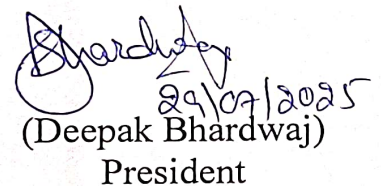 Bhardwaj
29/07/2025
(Deepak Bhardwaj)
President